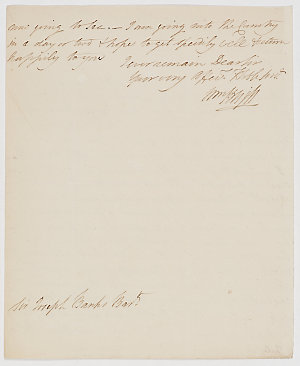 am going to see. — I am going into the Country
in a day or two & hope to get speedily well & return
happily to you
I ever remain Dear Sir
Your very Affect.
Wm Bligh
Sir Joseph Banks Bart.